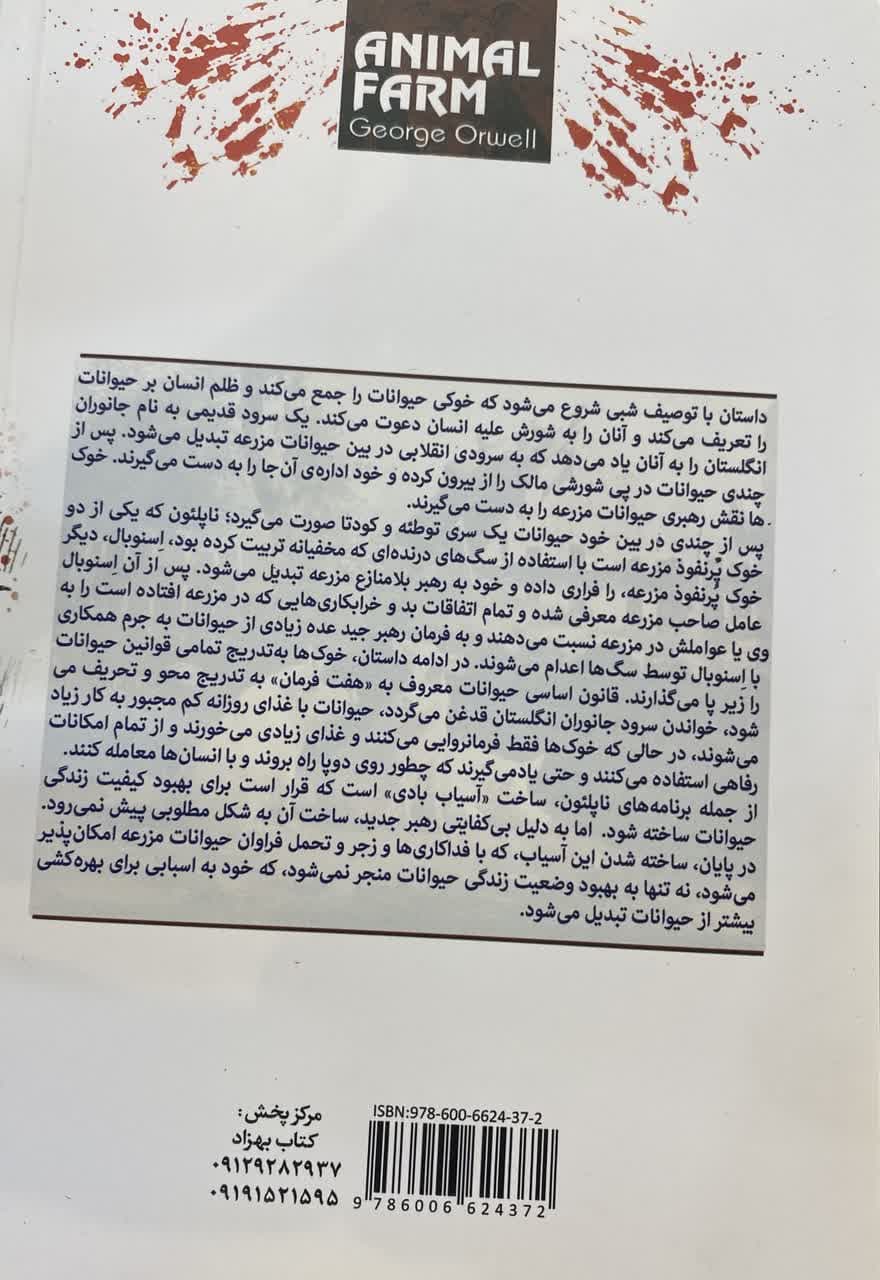 ANIMAL
FARM
George Orwell
داستان با توصیف شبی شروع می‌شود که خوکی حیوانات را جمع می‌کند و ظلم انسان بر حیوانات
را تعریف می‌کند و آنان را به شورش علیه انسان دعوت می‌کند. یک سرود قدیمی به نام جانوران
انگلستان را به آنان یاد می‌دهد که به سرودی انقلابی در بین حیوانات مزرعه تبدیل می‌شود. پس از
چندی حیوانات در پی شورشی مالک را از بیرون کرده و خود اداره‌ی آن‌جا را به دست می‌گیرند. خوک
ها نقش رهبری حیوانات مزرعه را به دست می‌گیرند.
پس از چندی در بین خود حیوانات یک سری توطئه و کودتا صورت می‌گیرد؛ ناپلئون که یکی از دو
خوک پُرنفوذ مزرعه است با استفاده از سگ‌های درنده‌ای که مخفیانه تربیت کرده بود، اِسنوبال، دیگر
خوک پُرنفوذ مزرعه، را فراری داده و خود به رهبر بلامنازع مزرعه تبدیل می‌شود. پس از آن اِسنوبال
عامل صاحب مزرعه معرفی شده و تمام اتفاقات بد و خرابکاری‌هایی که در مزرعه افتاده است را به
وی یا عواملش در مزرعه نسبت می‌دهند و به فرمان رهبر جید عده زیادی از حیوانات به جرم همکاری
با اِسنوبال توسط سگ‌ها اعدام می‌شوند. در ادامه داستان، خوک‌ها به‌تدریج تمامی قوانین حیوانات
را زیر پا می‌گذارند. قانون اساسی حیوانات معروف به «هفت فرمان» به تدریج محو و تحریف می
شود، خواندن سرود جانوران انگلستان قدغن می‌گردد، حیوانات با غذای روزانه کم مجبور به کار زیاد
می‌شوند، در حالی که خوک‌ها فقط فرمانروایی می‌کنند و غذای زیادی می‌خورند و از تمام امکانات
رفاهی استفاده می‌کنند و حتی یادمی‌گیرند که چطور روی دوپا راه بروند و با انسان‌ها معامله کنند.
از جمله برنامه‌های ناپلئون، ساخت «آسیاب بادی» است که قرار است برای بهبود کیفیت زندگی
حیوانات ساخته شود. اما به دلیل بی‌کفایتی رهبر جدید، ساخت آن به شکل مطلوبی پیش نمی‌رود.
در پایان، ساخته شدن این آسیاب، که با فداکاری‌ها و زجر و تحمل فراوان حیوانات مزرعه امکان‌پذیر
می‌شود، نه تنها به بهبود وضعیت زندگی حیوانات منجر نمی‌شود، که خود به اسبابی برای بهره‌کشی
بیشتر از حیوانات تبدیل می‌شود.
مرکز پخش:
کتاب بهزاد
۰۹۱۲۹۲۸۲۹۳۷
۰۹۱۹۱۵۲۱۵۹۵
ISBN:978-600-6624-37-2
9 786006 624372